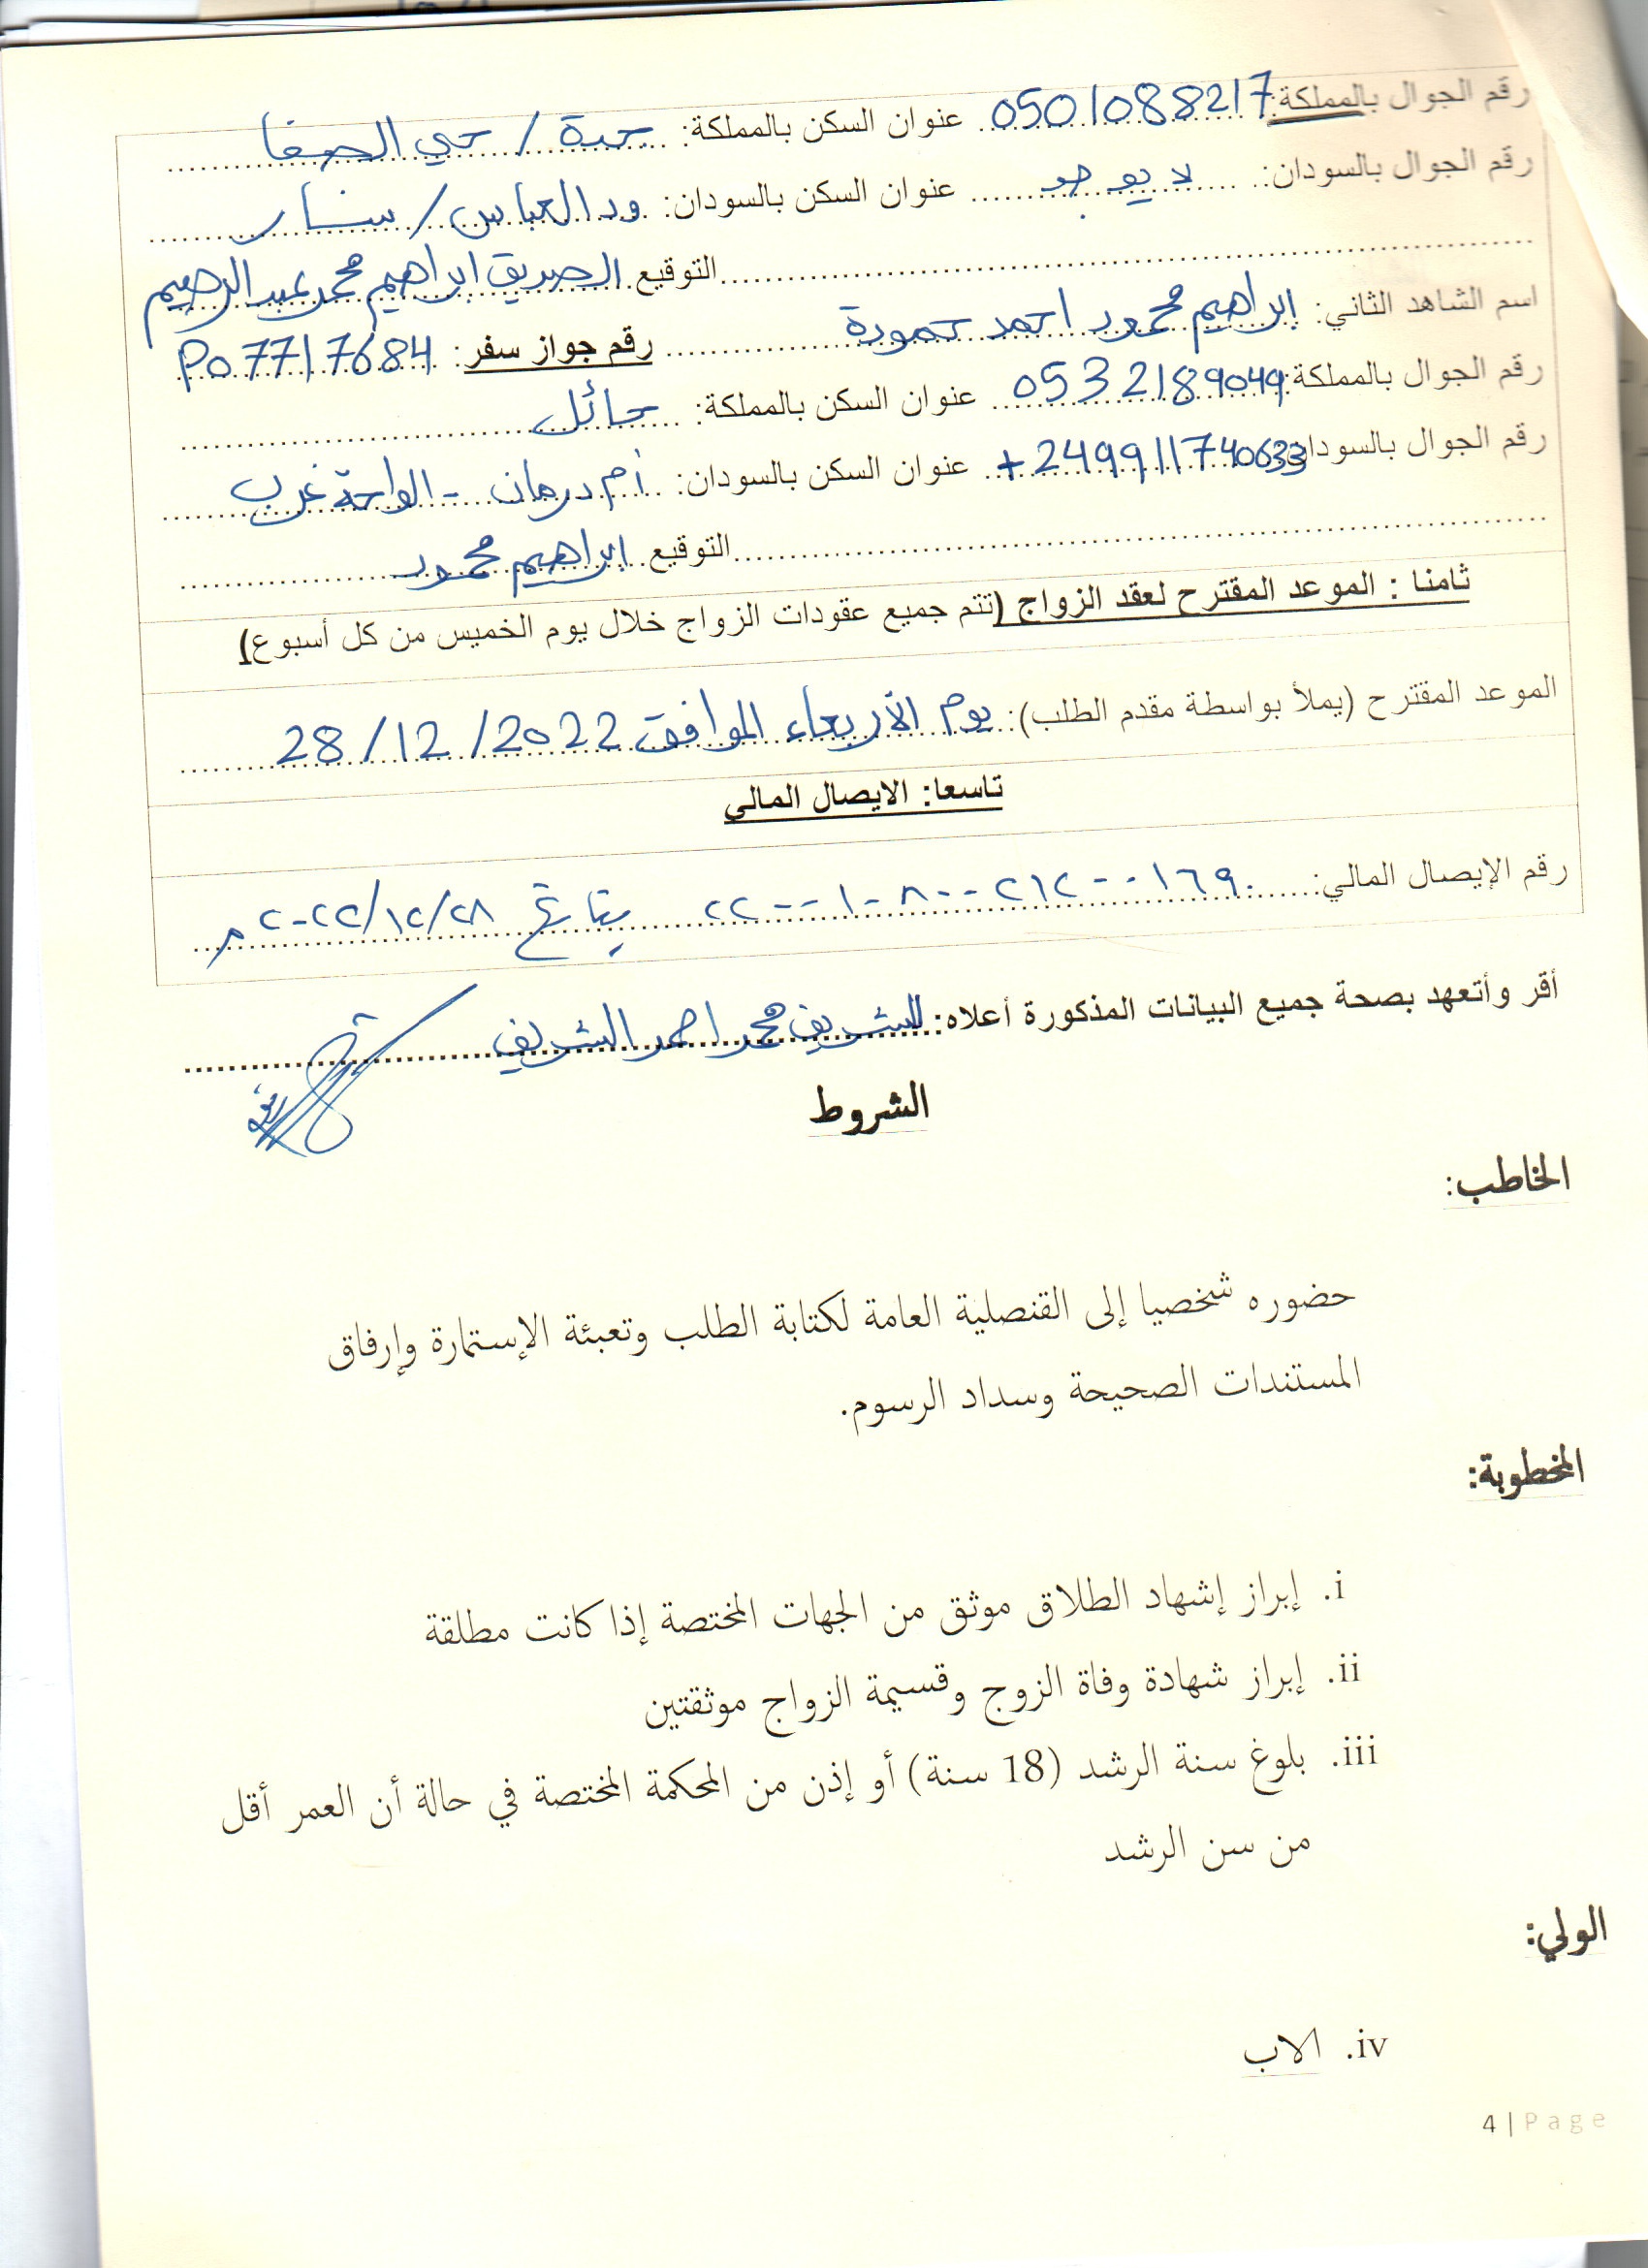 رقم الجوال بالمملكة: 0501088217 عنوان السكن بالمملكة: جدة / حي الصفا
رقم الجوال بالسودان: لا يوجد عنوان السكن بالسودان: ود العباس / سنار
التوقيع الصديق ابراهيم محمد عبد الرحيم
اسم الشاهد الثاني: ابراهيم محمود احمد حمودة رقم جواز سفر: P07717684
رقم الجوال بالمملكة: 0532189049 عنوان السكن بالمملكة: حائل
رقم الجوال بالسودان +249911740633 عنوان السكن بالسودان: أم درمان - الواحة غرب
التوقيع ابراهيم محمود
ثامنا : الموعد المقترح لعقد الزواج (تتم جميع عقودات الزواج خلال يوم الخميس من كل أسبوع)
الموعد المقترح (يملأ بواسطة مقدم الطلب): يوم الأربعاء الموافق 28/12/2022
تاسعا: الايصال المالي
رقم الإيصال المالي: ٢٢٠٠١٠٨٠٠٢١٢٠٠١٦٩٠ بتاريخ ٢٠٢٢/١٢/٢٨م
أقر وأتعهد بصحة جميع البيانات المذكورة أعلاه: الشريف محمد احمد الشريف
الشروط
الخاطب:
حضوره شخصيا إلى القنصلية العامة لكتابة الطلب وتعبئة الإستمارة وإرفاق
المستندات الصحيحة وسداد الرسوم.
المخطوبة:
i. إبراز إشهاد الطلاق موثق من الجهات المختصة إذا كانت مطلقة
ii. إبراز شهادة وفاة الزوج وقسيمة الزواج موثقتين
iii. بلوغ سنة الرشد (18 سنة) أو إذن من المحكمة المختصة في حالة أن العمر أقل
من سن الرشد
الولي:
iv. الاب
4 | Page